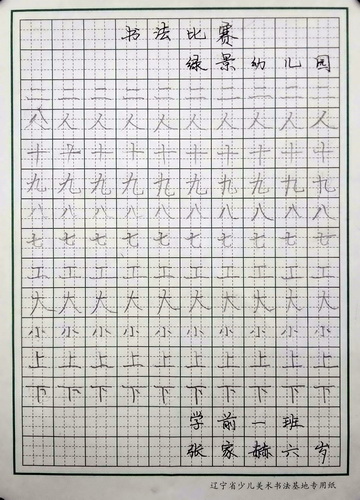 书法比赛
绿景幼儿园
二二二二二二二二二二
人人人人人人人人人人
十十十十十十十十十十
九九九九九九九九九九
八八八八八八八八八八
七七七七七七七七七七
工工工工工工工工工工
大大大大大大大大大大
小小小小小小小小小小
上上上上上上上上上上
下下下下下下下下下下
学前一班
张家赫六岁
辽宁省少儿美术书法基地专用纸